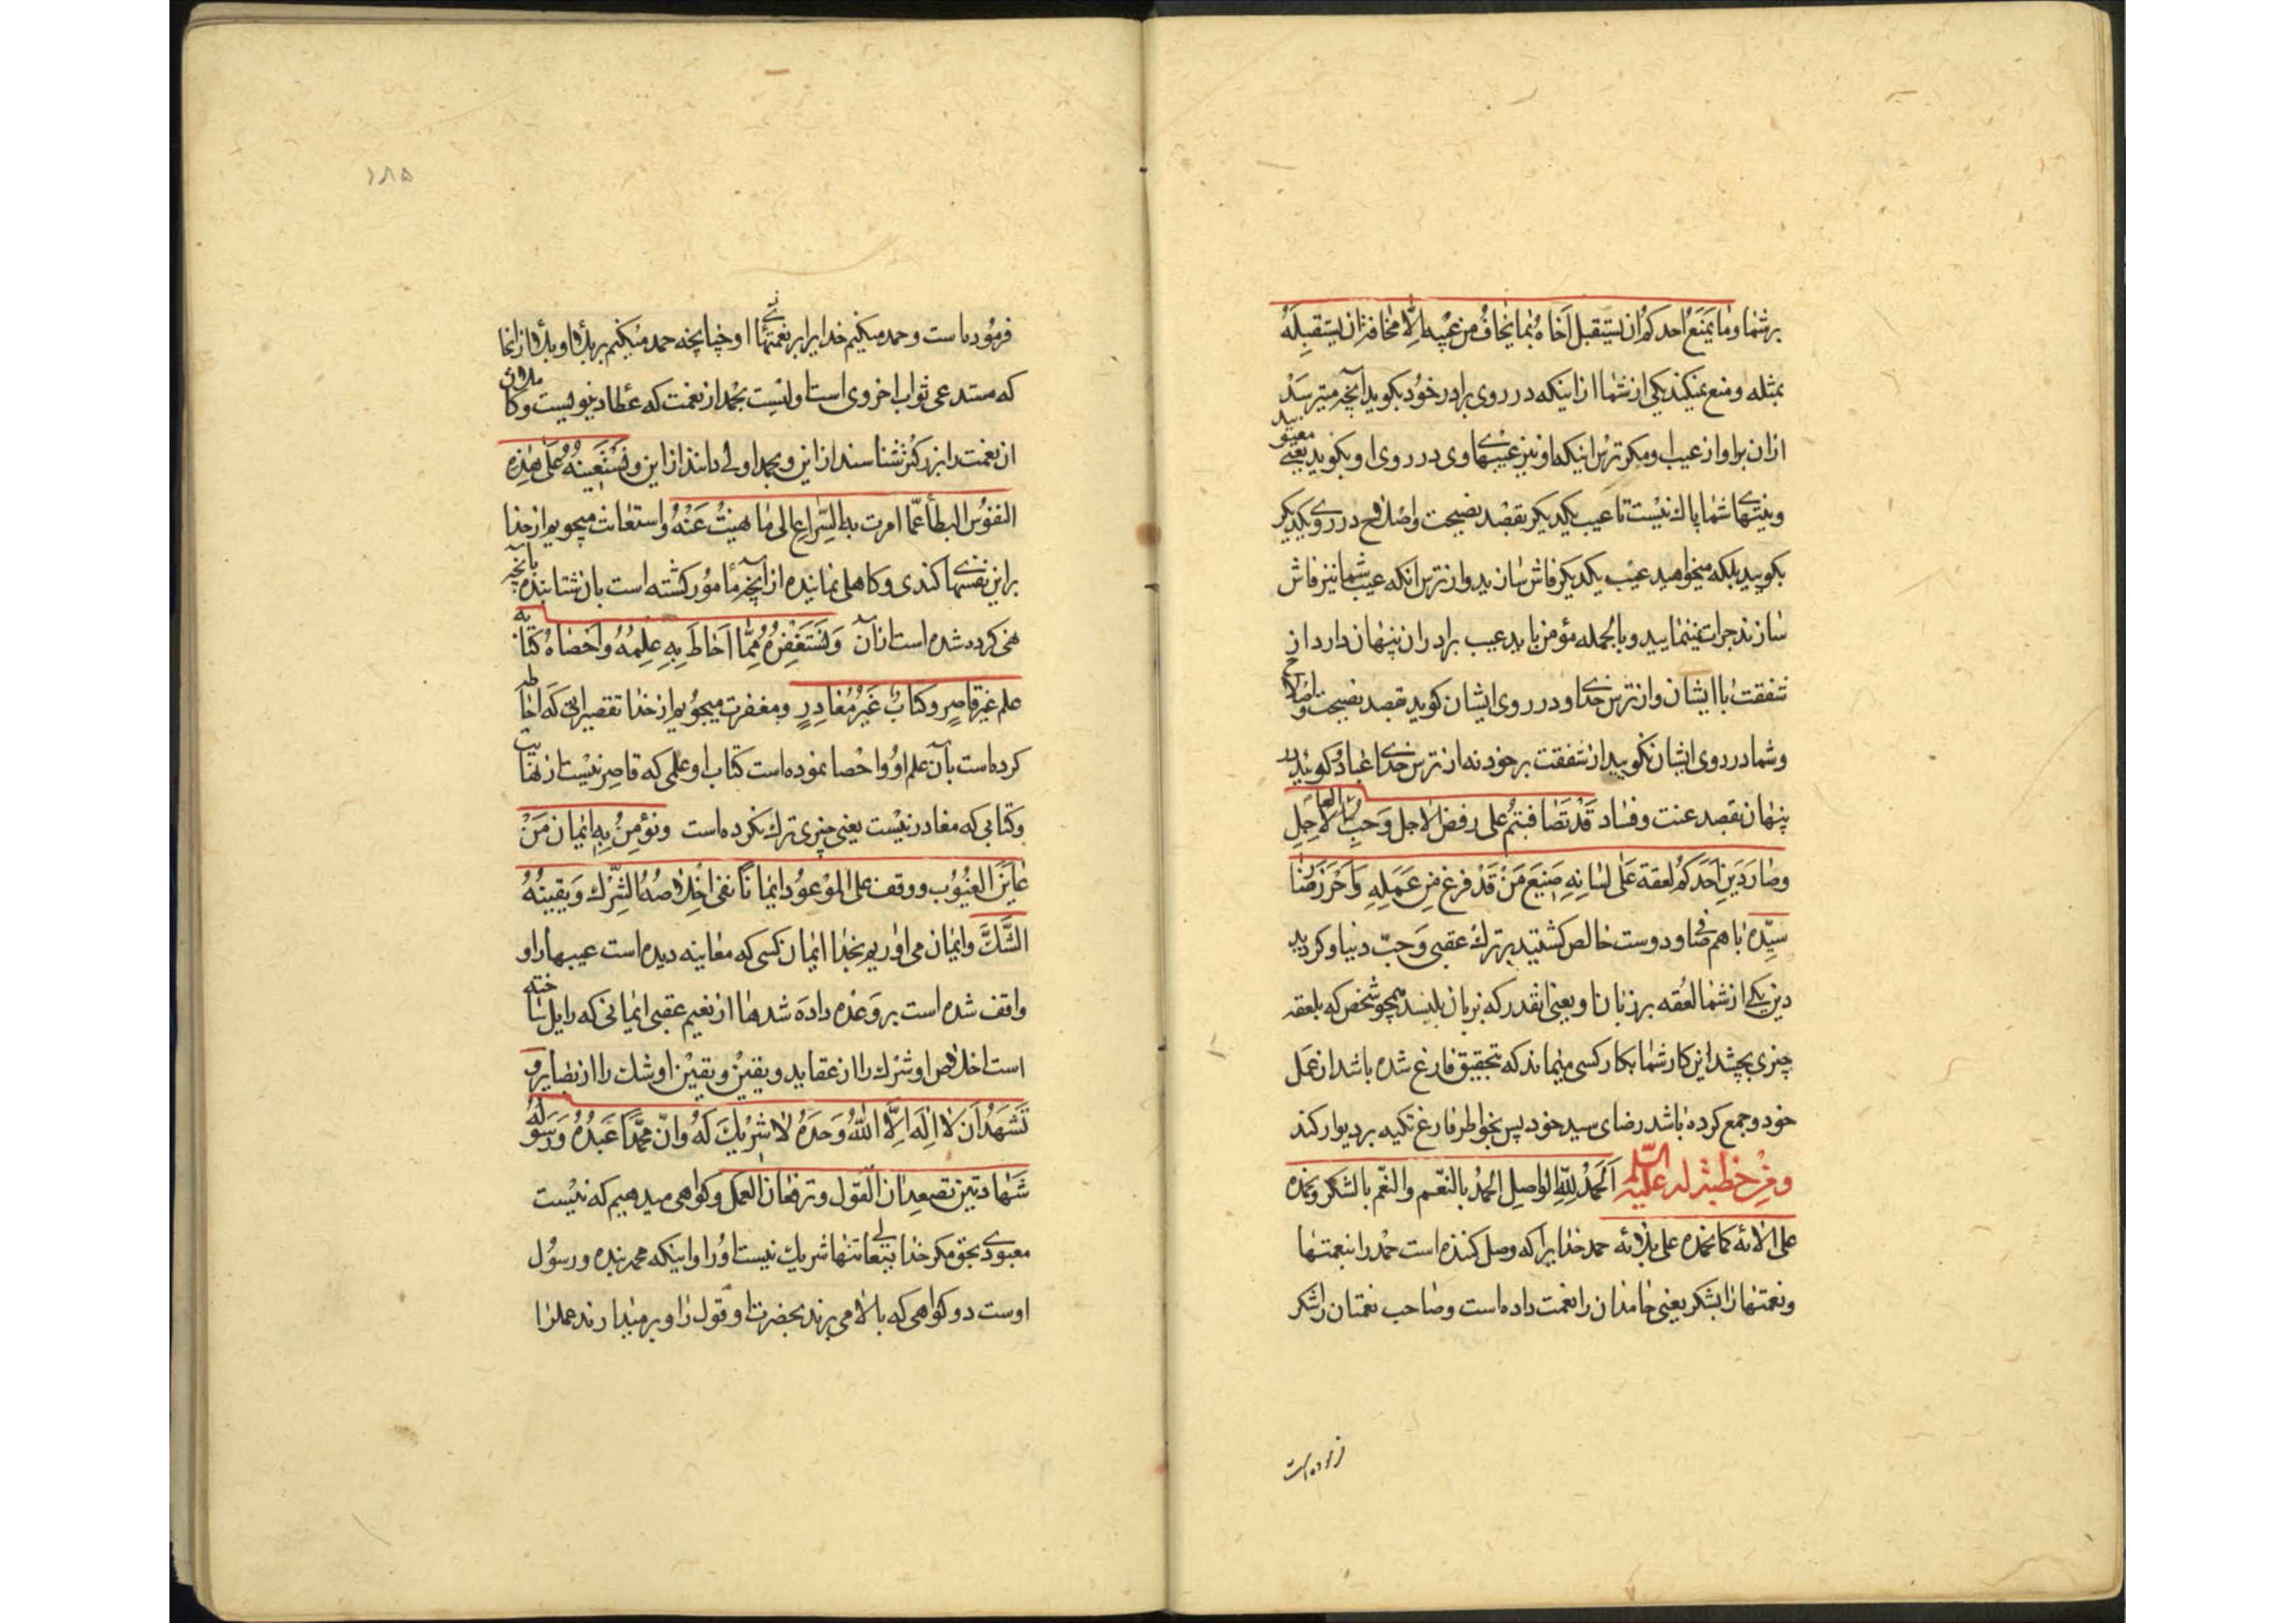 بر شما و ما يمنع احدكم ان يستقبل اخاه بما يخاف من عيبه الّا مخافة ان يستقبله
بمثله و منع نمیکند یکی از شما از اینکه در روی برادر خود بکوید آنچه میترسد
از ان برادر از عیب او مکر ترس اینکه او نیز عیبهای وی در روی او بکوید یعنی
و نیتهای شما پاك نیست تا عیب یکدیکر بقصد نصیحت و اصلاح در روی یکدیکر
بکویید بلکه میخواهید عیب یکدیکر فاش سازید و از ترس انکه عیب شما نیز فاش
سازند جرات نمینمایید و بالجمله مؤمن باید عیب برادران پنهان دارد از
شفقت با ایشان و از ترس خدای و در روی ایشان کوید بقصد نصیحت و اصلاح
و شما در روی ایشان نکویید از شفقت بر خود نه از ترس خدای
پنهان بقصد عنت و فساد قد تصافيتم على رفض الآجل و حبّ العاجل
و صار دين احدكم لعقة على لسانه صنيع من قد فرغ من عمله و احرز رضا
سيّده با هم صافی و دوست خالص کشتید بر ترك عقبی و حبّ دنیا و کردید
دین یکی از شما لعقه بر زبان او یعنی انقدر که بزبان بلیسد همچو شخص که بلعقه
چیزی بچشد این کار شما بکار کسی میماند که بتحقیق فارغ شده باشد از عمل
خود و جمع کرده باشد رضای سید خود پس بخواطر فارغ تکیه بر دیوار کند
و من خطبة له عليه السّلم الحمد للّه الواصل الحمد بالنّعم و النّعم بالشكر و نحمده
على الائه كما نحمده على بلائه حمد خدایرا که وصل کننده است حمد را بنعمتها
و نعمتها را بشکر یعنی حامدان را نعمت داده است و صاحب نعمتان را شکر
فرموده است
۱۸۵
فرموده است و حمد میکنیم خدایرا بر نعمتهای او چنانچه حمد میکنیم بر بلای او بلا از انجا
که مستدعی ثواب اخروی است اولیست بحمد از نعمت که عطا دنیویست و
ان نعمت را بزرکتر شناسند از این و بحمد اولی دانند از این و نستعينه على هذه
النفوس البطاء عمّا امرت به السّراع الى ما نهيت عنه و استعانت میجویم از خدا
بر این نفسهای کندی و کاهلی نماینده از آنچه مأمور کشته است بان شتابنده بانچه
نهی کرده شده است از آن و نستغفره ممّا احاط به علمه و احصاه كتابه
علم غير قاصر و كتاب غير مغادر و مغفرت میجویم از خدا تقصیراتی که احاطه
کرده است بآن علم او و احصا نموده است کتاب او علمی که قاصر نیست از نهایت
و کتابی که مغادر نیست یعنی چیزی ترك نکرده است و نؤمن به ايمان من
عاين الغيوب و وقف على الموعود ايمانا نفى اخلاصه الشّرك و يقينه
الشّكّ و ایمان می اوریم بخدا ایمان کسی که معاینه دیده است عیبها را و
واقف شده است بر وعده داده شدها از نعیم عقبی ایمانی که زایل ساخته
است اخلاص او شرك را از عقاید و یقین او شك را از بصایر و
نشهد ان لا اله الّا اللّه وحده لا شريك له و انّ محمّدا عبده و رسوله
شهادتين تصعدان القول و ترفعان العمل و کواهی میدهیم که نیست
معبودی بحق مکر خدایتعالی تنها شریك نیست او را و اینکه محمد بنده و رسول
اوست دو کواهی که بالا می برند بحضرت او قول را و بر میدارند عمل را